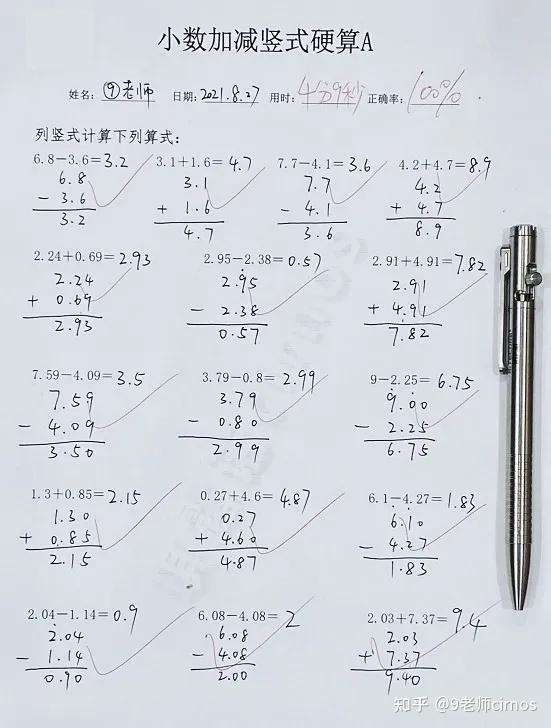 小数加减竖式硬算A
姓名: ⑨老师 日期: 2021.8.27 用时: 4分9秒 正确率: 100%
列竖式计算下列算式:
6.8－3.6＝3.2 3.1＋1.6＝4.7 7.7－4.1＝3.6 4.2＋4.7＝8.9
6.8 3.1 7.7 4.2
－ 3.6 ＋ 1.6 － 4.1 ＋ 4.7
3.2 4.7 3.6 8.9
2.24＋0.69＝2.93 2.95－2.38＝0.57 2.91＋4.91＝7.82
2.24 2.95 2.91
＋ 0.69 － 2.38 ＋ 4.91
2.93 0.57 7.82
7.59－4.09＝3.5 3.79－0.8＝2.99 9－2.25＝6.75
7.59 3.79 9.00
－ 4.09 － 0.80 － 2.25
3.50 2.99 6.75
1.3＋0.85＝2.15 0.27＋4.6＝4.87 6.1－4.27＝1.83
1.30 0.27 6.10
＋ 0.85 ＋ 4.60 － 4.27
2.15 4.87 1.83
2.04－1.14＝0.9 6.08－4.08＝2 2.03＋7.37＝9.4
2.04 6.08 2.03
－ 1.14 － 4.08 ＋ 7.37
0.90 2.00 9.40
知乎 @9老师cirnos